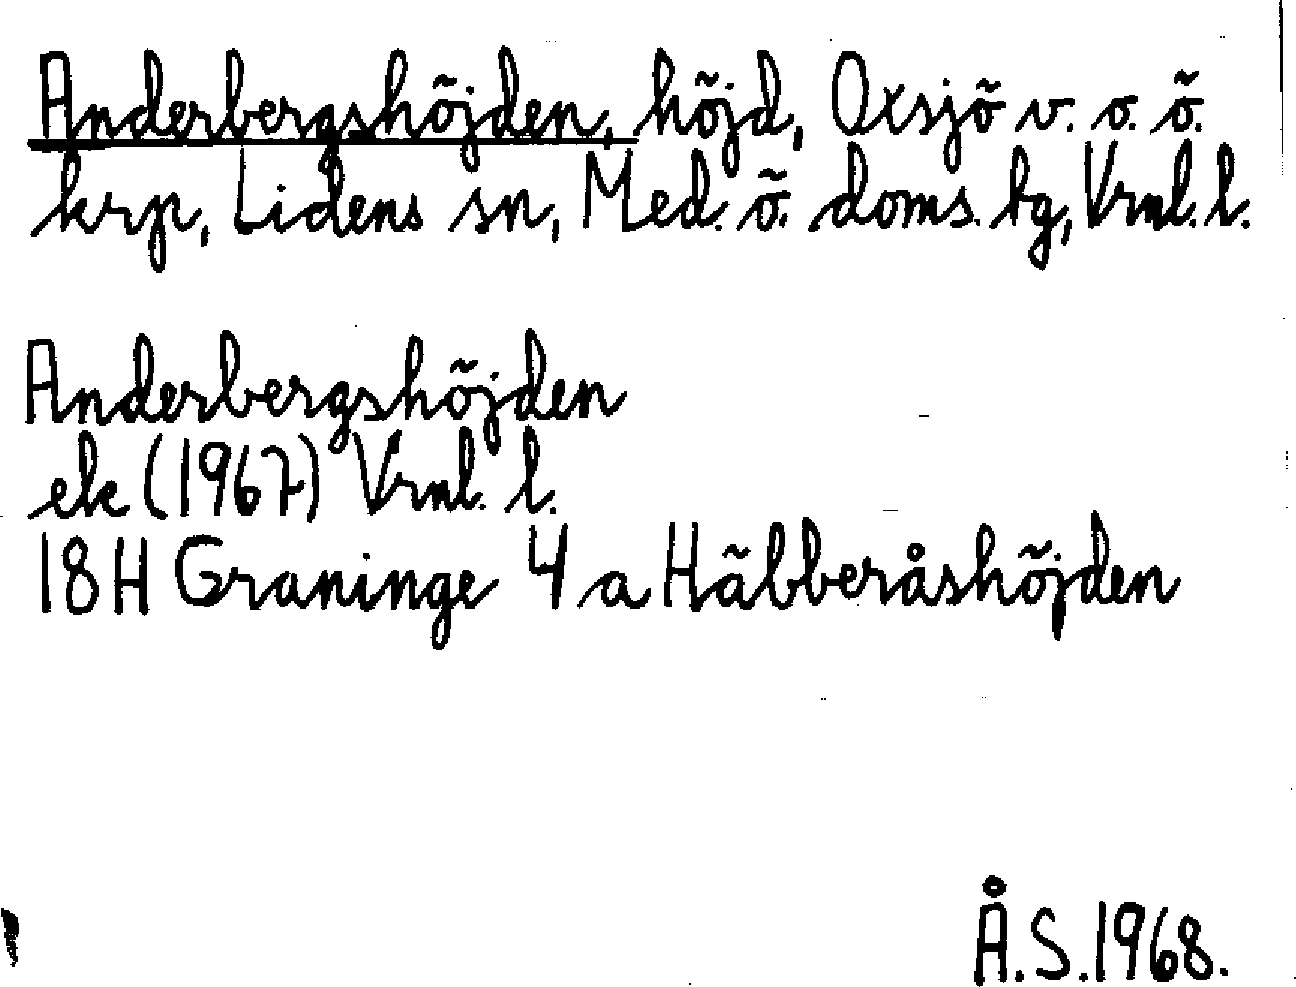 Anderbergshöjden, höjd, Oxsjö v. o. ö.
krp, Lidens sn, Med. ö. doms. tg, Vrnl. l.
Anderbergshöjden
ek (1967) Vrnl. l.
18H Graninge 4 a Häbberåshöjden
Å.S.1968.